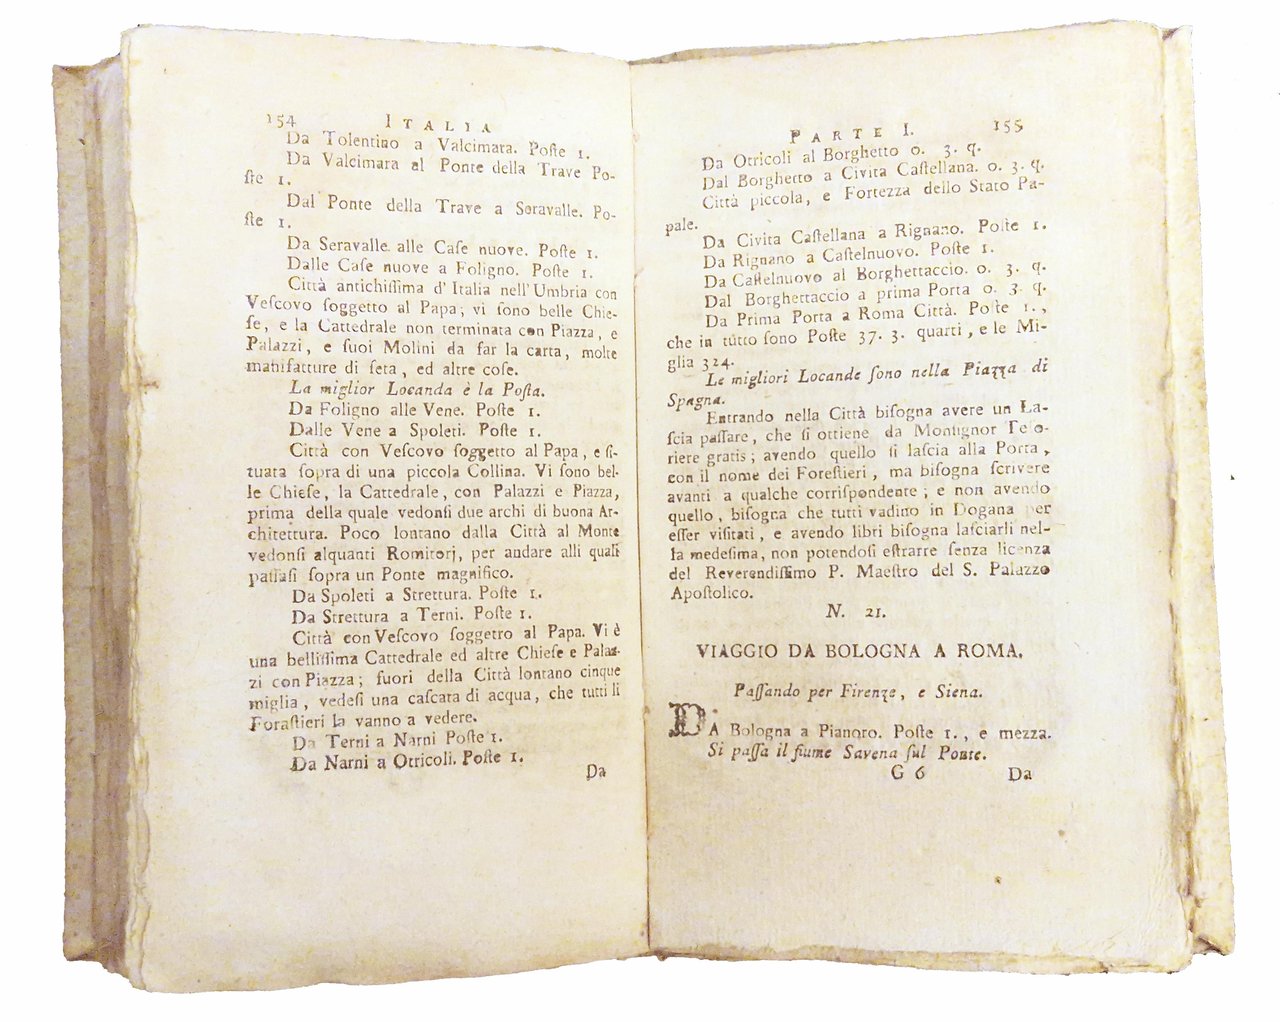 154 ITALIA
Da Tolentino a Valcimara. Poſte 1.
Da Valcimara al Ponte della Trave Po-
ſte 1.
Dal Ponte della Trave a Seravalle. Po-
ſte 1.
Da Seravalle. alle Caſe nuove. Poſte 1.
Dalle Caſe nuove a Foligno. Poſte 1.
Città antichiſſima d'Italia nell'Umbria con
Veſcovo ſoggetto al Papa; vi ſono belle Chie-
ſe, e la Cattedrale non terminata con Piazza, e
Palazzi, e ſuoi Molini da far la carta, molte
manifatture di ſeta, ed altre coſe.
La miglior Locanda è la Poſta.
Da Foligno alle Vene. Poſte 1.
Dalle Vene a Spoleti. Poſte 1.
Città con Veſcovo ſoggetto al Papa, e ſi-
tuata ſopra di una piccola Collina. Vi ſono bel-
le Chieſe, la Cattedrale, con Palazzi e Piazza,
prima della quale vedonſi due archi di buona Ar-
chitettura. Poco lontano dalla Città al Monte
vedonſi alquanti Romitorj, per andare alli quali
paſſaſi ſopra un Ponte magnifico.
Da Spoleti a Strettura. Poſte 1.
Da Strettura a Terni. Poſte 1.
Città con Veſcovo ſoggetto al Papa. Vi è
una belliſſima Cattedrale ed altre Chieſe e Palaz-
zi con Piazza; fuori della Città lontano cinque
miglia, vedeſi una caſcata di acqua, che tutti li
Foraſtieri la vanno a vedere.
Da Terni a Narni Poſte 1.
Da Narni a Otricoli. Poſte 1.
Da
PARTE I. 155
Da Otricoli al Borghetto 0. 3. q.
Dal Borghetto a Civita Caſtellana. 0. 3. q.
Città piccola, e Fortezza dello Stato Pa-
pale.
Da Civita Caſtellana a Rignano. Poſte 1.
Da Rignano a Caſtelnuovo. Poſte 1.
Da Caſtelnuovo al Borghettaccio. 0. 3. q.
Dal Borghettaccio a prima Porta 0. 3. q.
Da Prima Porta a Roma Città. Poſte 1.,
che in tutto ſono Poſte 37. 3. quarti, e le Mi-
glia 324.
Le migliori Locande ſono nella Piazza di
Spagna.
Entrando nella Città biſogna avere un La-
ſcia paſſare, che ſi ottiene da Monſignor Teſo-
riere gratis; avendo quello ſi laſcia alla Porta,
con il nome dei Foreſtieri, ma biſogna ſcrivere
avanti a qualche corriſpondente; e non avendo
quello, biſogna che tutti vadino in Dogana per
eſſer viſitati, e avendo libri biſogna laſciarli nel-
la medeſima, non potendoſi eſtrarre ſenza licenza
del Reverendiſſimo P. Maeſtro del S. Palazzo
Apoſtolico.
N. 21.
VIAGGIO DA BOLOGNA A ROMA,
Paſſando per Firenze, e Siena.
DA Bologna a Pianoro. Poſte 1., e mezza.
Si paſſa il fiume Savena ſul Ponte.
G 6 Da